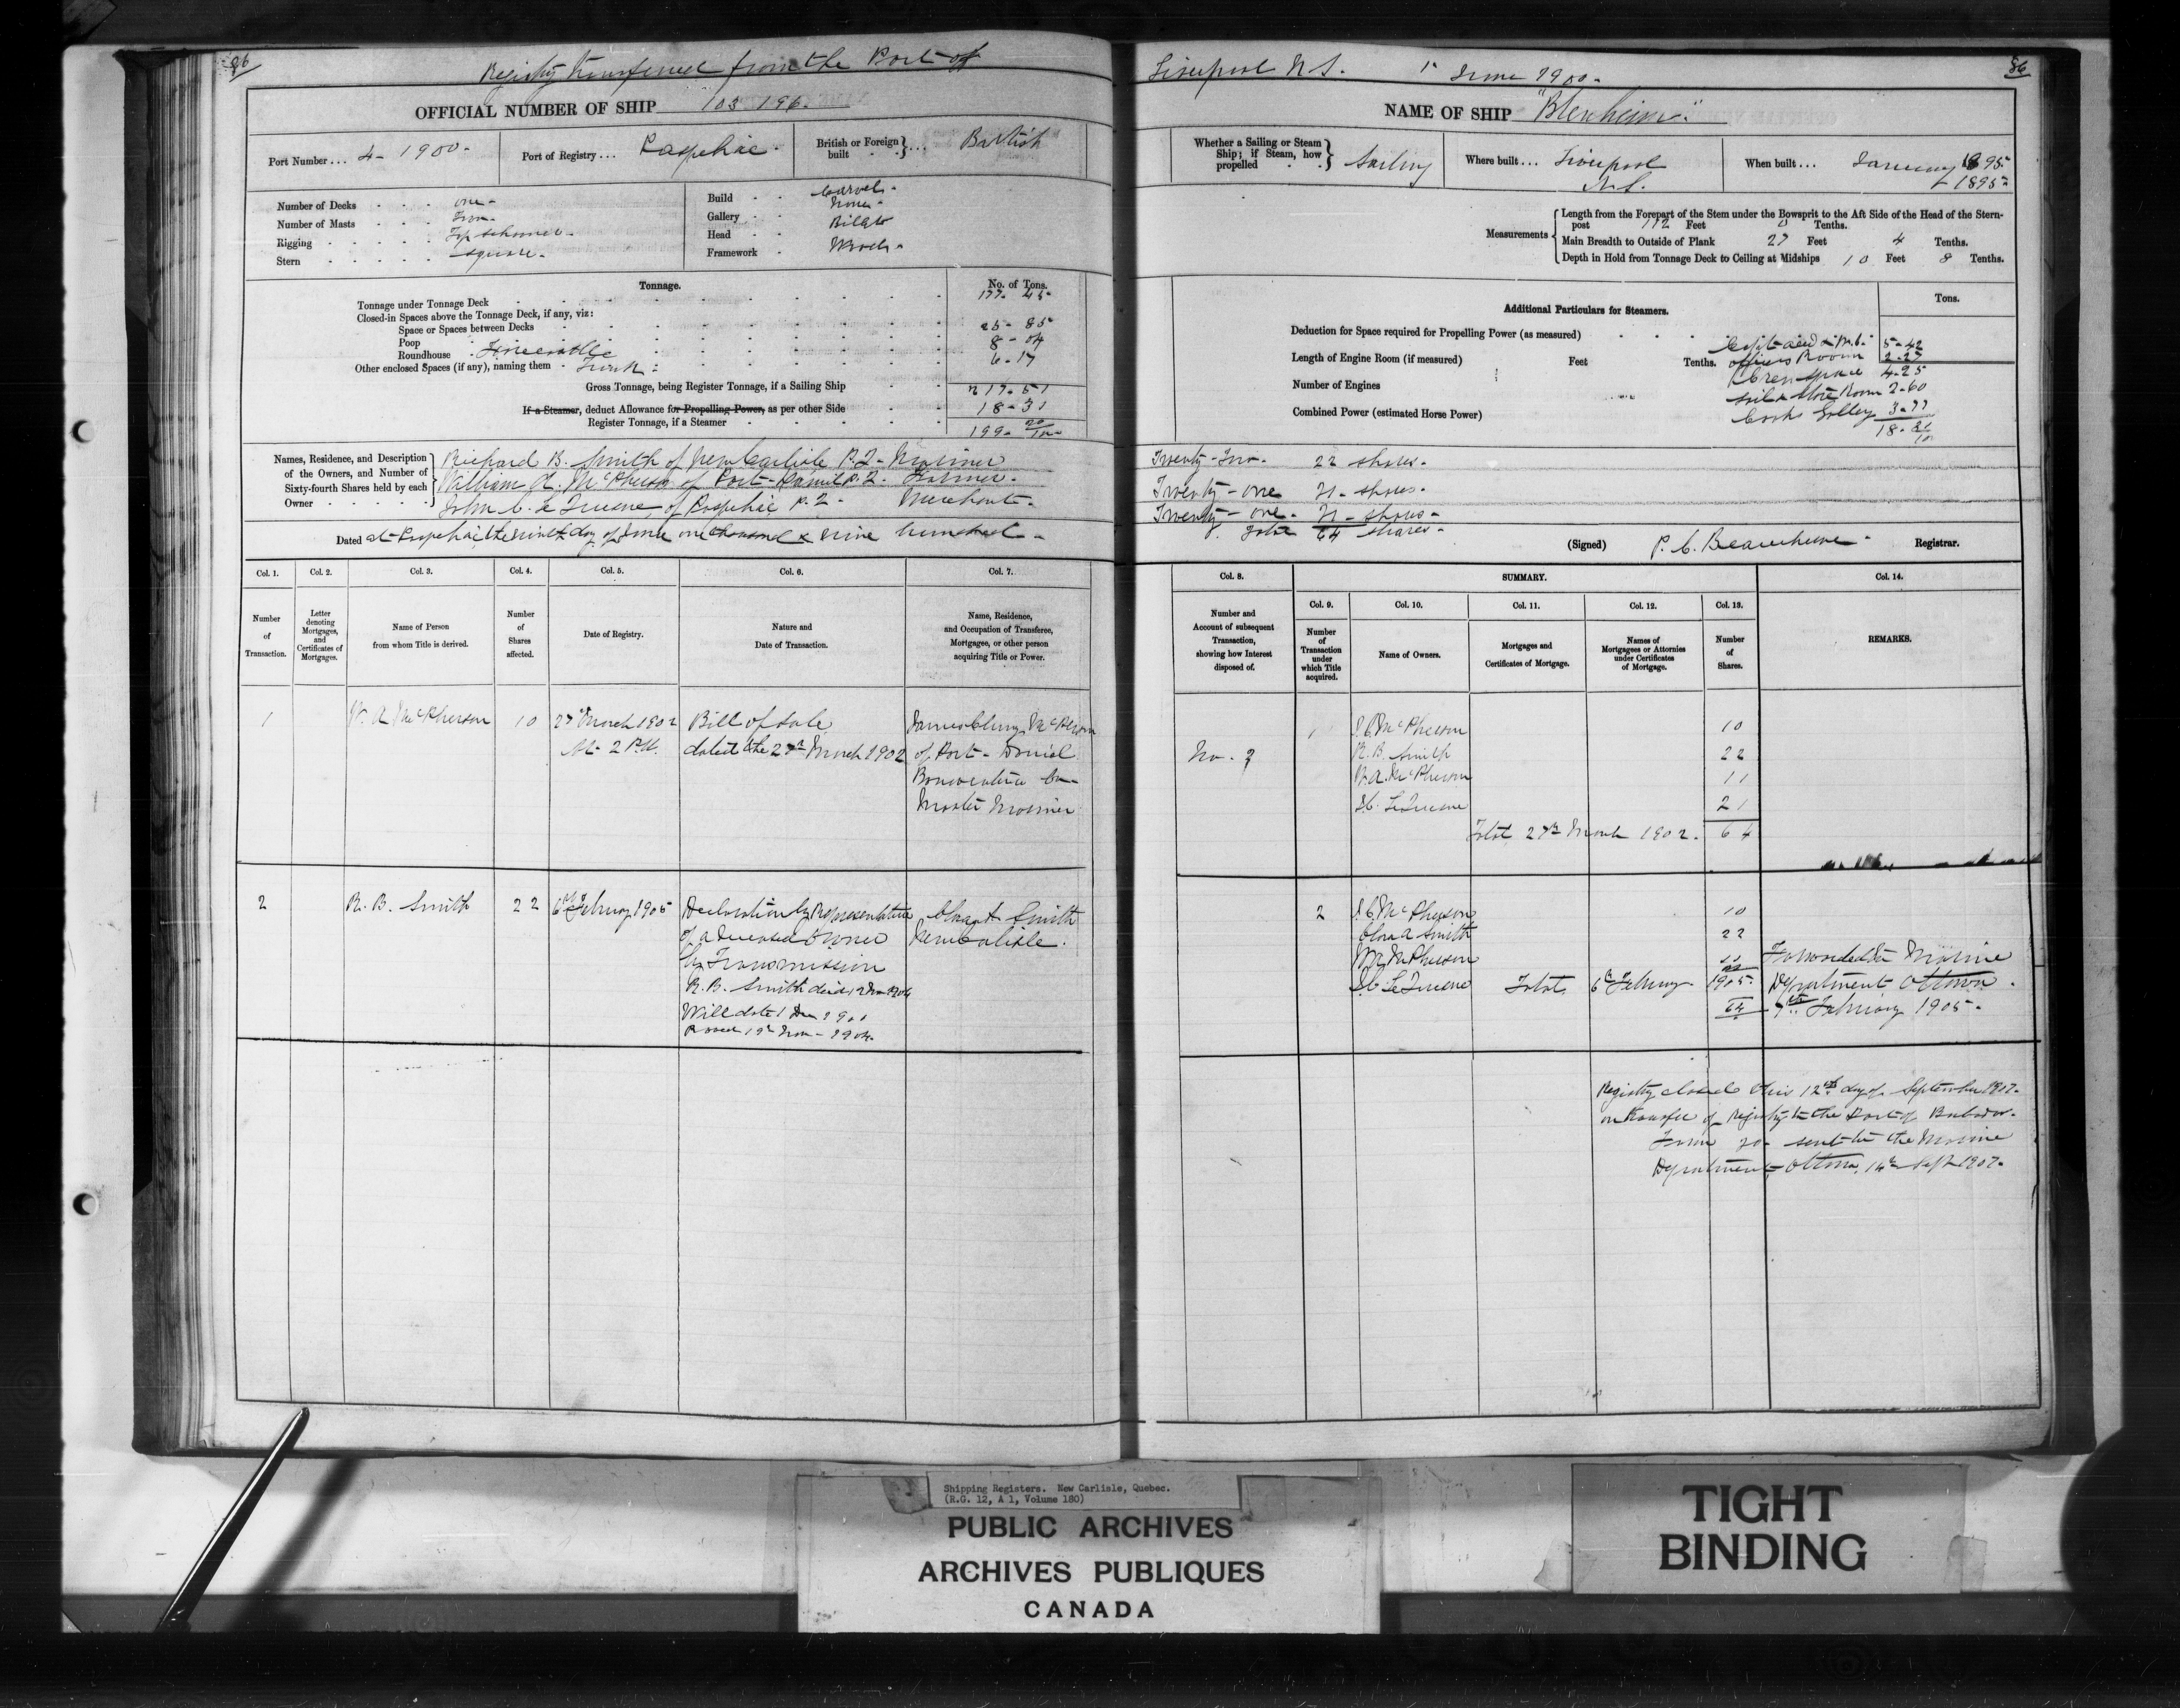 86
Registry transferred from the Port of
OFFICIAL NUMBER OF SHIP 103 196.
Port Number ... 4 - 1900 -
Port of Registry ... Paspebiac.
British or Foreign built ... British
Number of Decks one -
Number of Masts Two -
Rigging Top schooner -
Stern square -
Build Carvel -
Gallery None -
Head Billet
Framework Wood -
Tonnage.
No. of Tons.
Tonnage under Tonnage Deck 177 - 45
Closed-in Spaces above the Tonnage Deck, if any, viz:
Space or Spaces between Decks 25 - 85
Poop 8 - 04
Roundhouse
Other enclosed Spaces (if any), naming them - Trunk - 6 - 17
Gross Tonnage, being Register Tonnage, if a Sailing Ship 217 - 51
If a Steamer, deduct Allowance for Propelling Power, as per other Side 18 - 31
Register Tonnage, if a Steamer 199 - 20
Names, Residence, and Description of the Owners, and Number of Sixty-fourth Shares held by each Owner
Richard B. Smith of New Carlisle P.Q. - Mariner
William A. McPherson of Port-Daniel P.Q. - Farmer -
John C. Le Quesne of Paspebiac P.Q. - Merchant -
Dated at Paspebiac the ninth day of June one thousand & nine hundred -
Col. 1.
Col. 2.
Col. 3.
Col. 4.
Col. 5.
Col. 6.
Col. 7.
Number of Transaction.
Letter denoting Mortgages, and Certificates of Mortgages.
Name of Person from whom Title is derived.
Number of Shares affected.
Date of Registry.
Nature and Date of Transaction.
Name, Residence, and Occupation of Transferee, Mortgagee, or other person acquiring Title or Power.
1 W. A McPherson 10 27 March 1902 Bill of Sale James McPherson
At 2 P.M. dated the 27th March 1902 of Port-Daniel
Bonaventure Co -
Master Mariner
2 R. B. Smith 22 6th February 1905 Declaration by Representative Clara A Smith
of a deceased Owner New Carlisle.
by Transmission
R. B. Smith died
Will date 1 Dec
1904.
Liverpool N.S. 1st June 1900 -
86
NAME OF SHIP "Blenheim".
Whether a Sailing or Steam Ship; if Steam, how propelled Sailing
Where built ... Liverpool N.S.
When built ... January 1895
1895
Measurements
Length from the Forepart of the Stem under the Bowsprit to the Aft Side of the Head of the Stern-
post 112 Feet 0 Tenths.
Main Breadth to Outside of Plank 27 Feet 4 Tenths.
Depth in Hold from Tonnage Deck to Ceiling at Midships 10 Feet 8 Tenths.
Additional Particulars for Steamers.
Tons.
Deduction for Space required for Propelling Power (as measured)
Length of Engine Room (if measured) Feet Tenths.
Number of Engines
Combined Power (estimated Horse Power)
5 - 42
officers Room 2 - 27
Crew space 4 - 25
sail & Store Room 2 - 60
Cooks Galley 3 - 77
18 - 31
Twenty-Two - 22 shares -
Twenty-one 21 - shares -
Twenty-one - 21 - shares -
Total 64 shares -
(Signed) Registrar.
Col. 8.
SUMMARY.
Col. 14.
Col. 9.
Col. 10.
Col. 11.
Col. 12.
Col. 13.
Number and Account of subsequent Transaction, showing how Interest disposed of.
Number of Transaction under which Title acquired.
Name of Owners.
Mortgages and Certificates of Mortgage.
Names of Mortgagees or Attornies under Certificates of Mortgage.
Number of Shares.
REMARKS.
1 J. C. McPherson 10
No. 2 R. B. Smith 22
W. A. McPherson 11
J. C. Le Quesne 21
Total 27th March 1902. 64
2 J. C. McPherson 10
Clara A Smith 22
W A McPherson 11 Forwarded to Marine
J. C. Le Quesne Total 6th February 1905. Department Ottawa.
64 7th February 1905 -
Registry closed this 12th day of September 1907 -
on transfer of registry to the Port of Barbados.
Form 20 sent to the Marine
Department, Ottawa, 14th Sept 1907 -
Shipping Registers. New Carlisle, Quebec.
(R.G. 12, A 1, Volume 180)
PUBLIC ARCHIVES
ARCHIVES PUBLIQUES
CANADA
TIGHT
BINDING